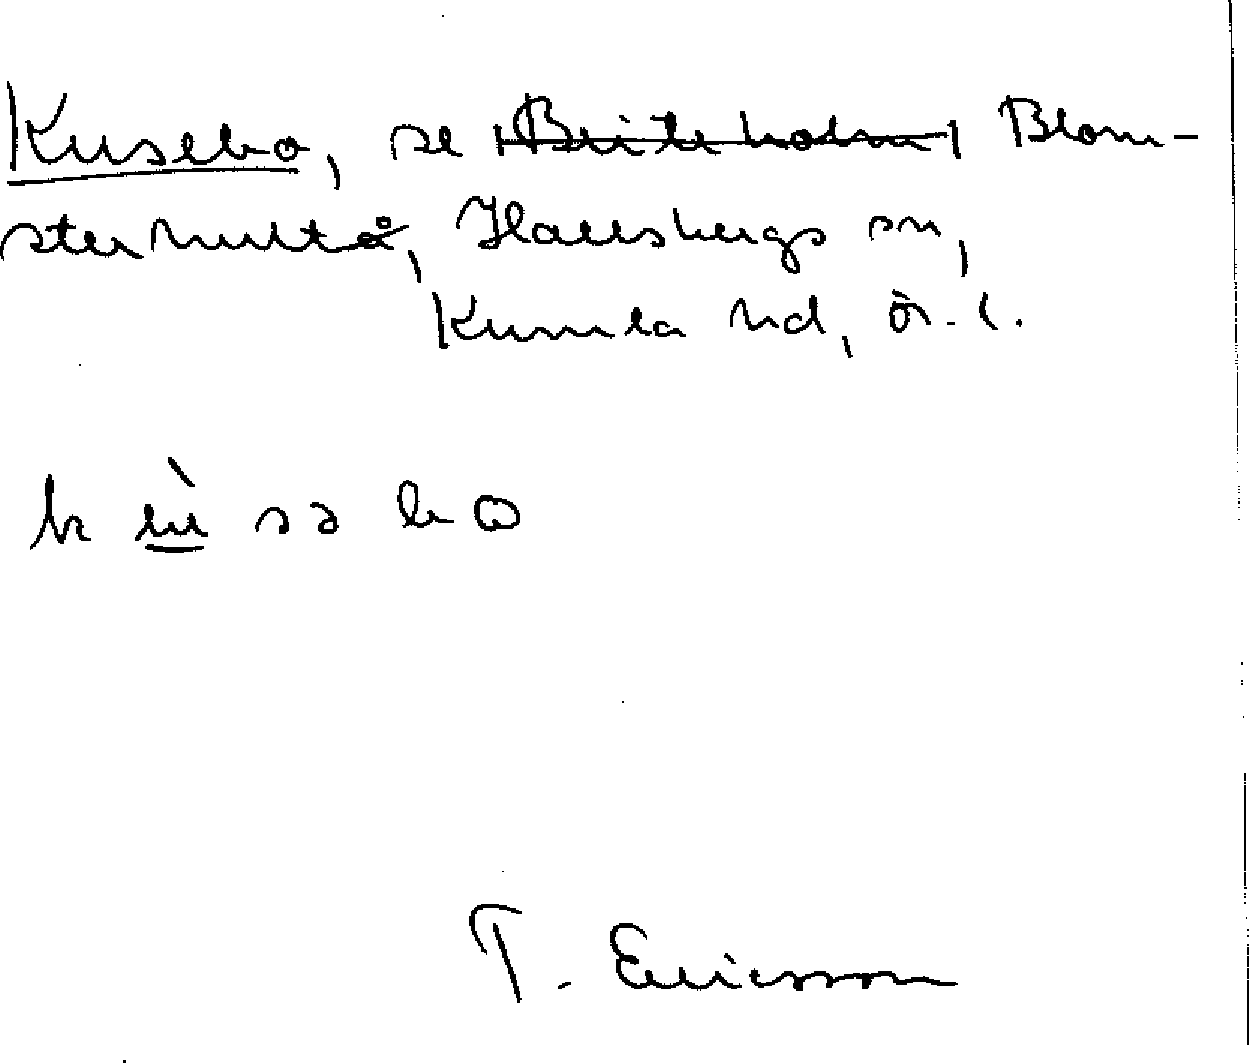 Kusebo, se Britteholm, Blom-
sterhultå, Hallsbergs sn,
Kumla hd, Ö.l.
kù sə bo
T. Ericsson